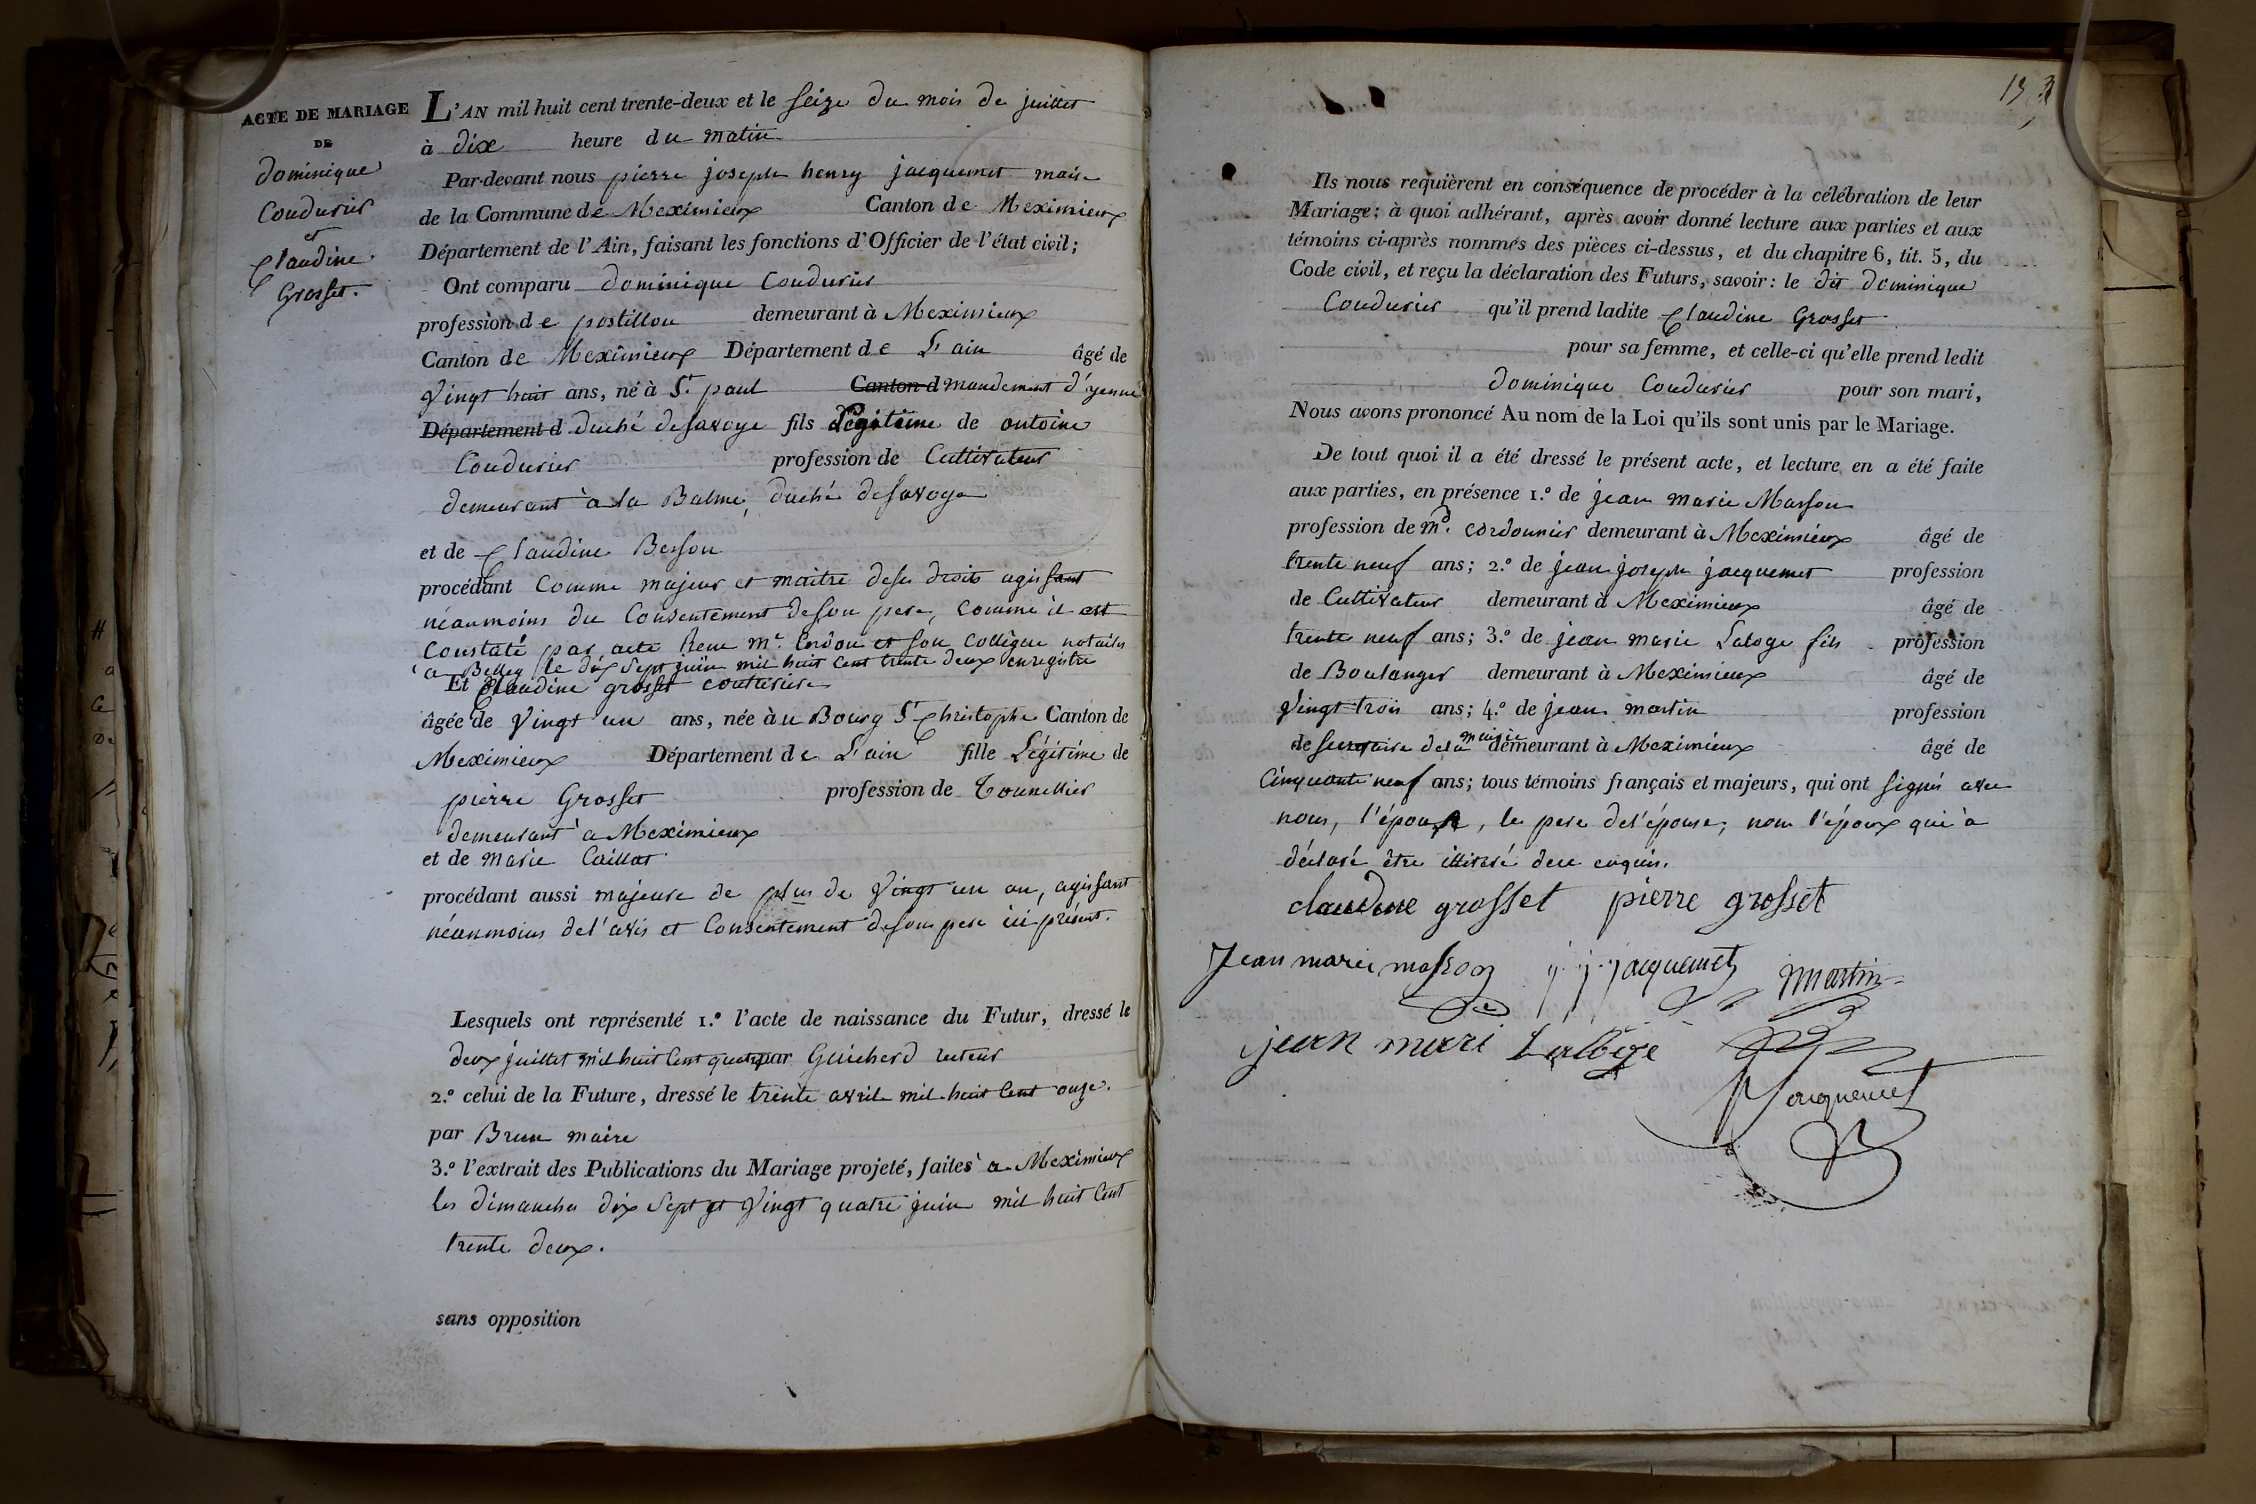 ACTE DE MARIAGE
DE
dominique
Coudurier
et
Claudine
Grosset.
L'AN mil huit cent trente-deux et le seize du mois de juillet
à dix heure du matin
Par-devant nous pierre joseph henry jacquemet maire
de la Commune de Meximieux Canton de Meximieux
Département de l'Ain, faisant les fonctions d'Officier de l'état civil;
Ont comparu dominique Coudurier
profession de postillon demeurant à Meximieux
Canton de Meximieux Département de L'ain âgé de
vingt huit ans, né à St. paul Canton d mandement d'yenne
Département d duché de savoye fils Légitime de antoine
Coudurier profession de Cultivateur
demeurant à la Balme, duché de savoye
et de Claudine Besson
procédant Comme majeur et maitre de ses droits agissant
néanmoins du Consentement de son pere, Comme il est
Constaté par acte Reçu mr. et son collègue notaires
a Belley le dix sept juin mil huit cent trente deux enregistré
Et Claudine grosset couturière
âgée de vingt un ans, née à u Bourg St Christophe Canton de
Meximieux Département de L'ain fille Légitime de
pierre Grosset profession de Tonnellier
demeurant à Meximieux
et de marie Caillat
procédant aussi majeure de plus de vingt un an, agissant
néanmoins de l'avis et Consentement de son pere ici présent.
Lesquels ont représenté 1.º l'acte de naissance du Futur, dressé le
deux juillet mil huit Cent quatre par Guicherd recteur
2.º celui de la Future, dressé le trente avril mil huit Cent onze.
par Brun maire
3.º l'extrait des Publications du Mariage projeté, faites à Meximieux
les dimanches dix sept et vingt quatre juin mil huit Cent
trente deux.
sans opposition
Ils nous requièrent en conséquence de procéder à la célébration de leur
Mariage; à quoi adhérant, après avoir donné lecture aux parties et aux
témoins ci-après nommés des pièces ci-dessus, et du chapitre 6, tit. 5, du
Code civil, et reçu la déclaration des Futurs, savoir: le dit dominique
Coudurier qu'il prend ladite Claudine Grosset
pour sa femme, et celle-ci qu'elle prend ledit
dominique Coudurier pour son mari,
Nous avons prononcé Au nom de la Loi qu'ils sont unis par le Mariage.
De tout quoi il a été dressé le présent acte, et lecture en a été faite
aux parties, en présence 1.º de jean marie Masson
profession de md. cordonnier demeurant à Meximieux âgé de
trente neuf ans; 2.º de jean joseph jacquemet profession
de Cultivateur demeurant à Meximieux âgé de
trente neuf ans; 3.º de jean marie Laloge fils profession
de Boulanger demeurant à Meximieux âgé de
vingt trois ans; 4.º de jean martin profession
de secretaire de la mairie demeurant à Meximieux âgé de
Cinquante neuf ans; tous témoins français et majeurs, qui ont signés avec
nous, l'épouse, le pere de l'épouse, non l'époux qui à
déclaré être illitéré de ce enquis.
claudine grosset pierre grosset
Jean marie masson j. j. jacquemet martin
jean mari Laloge
Jacquemet